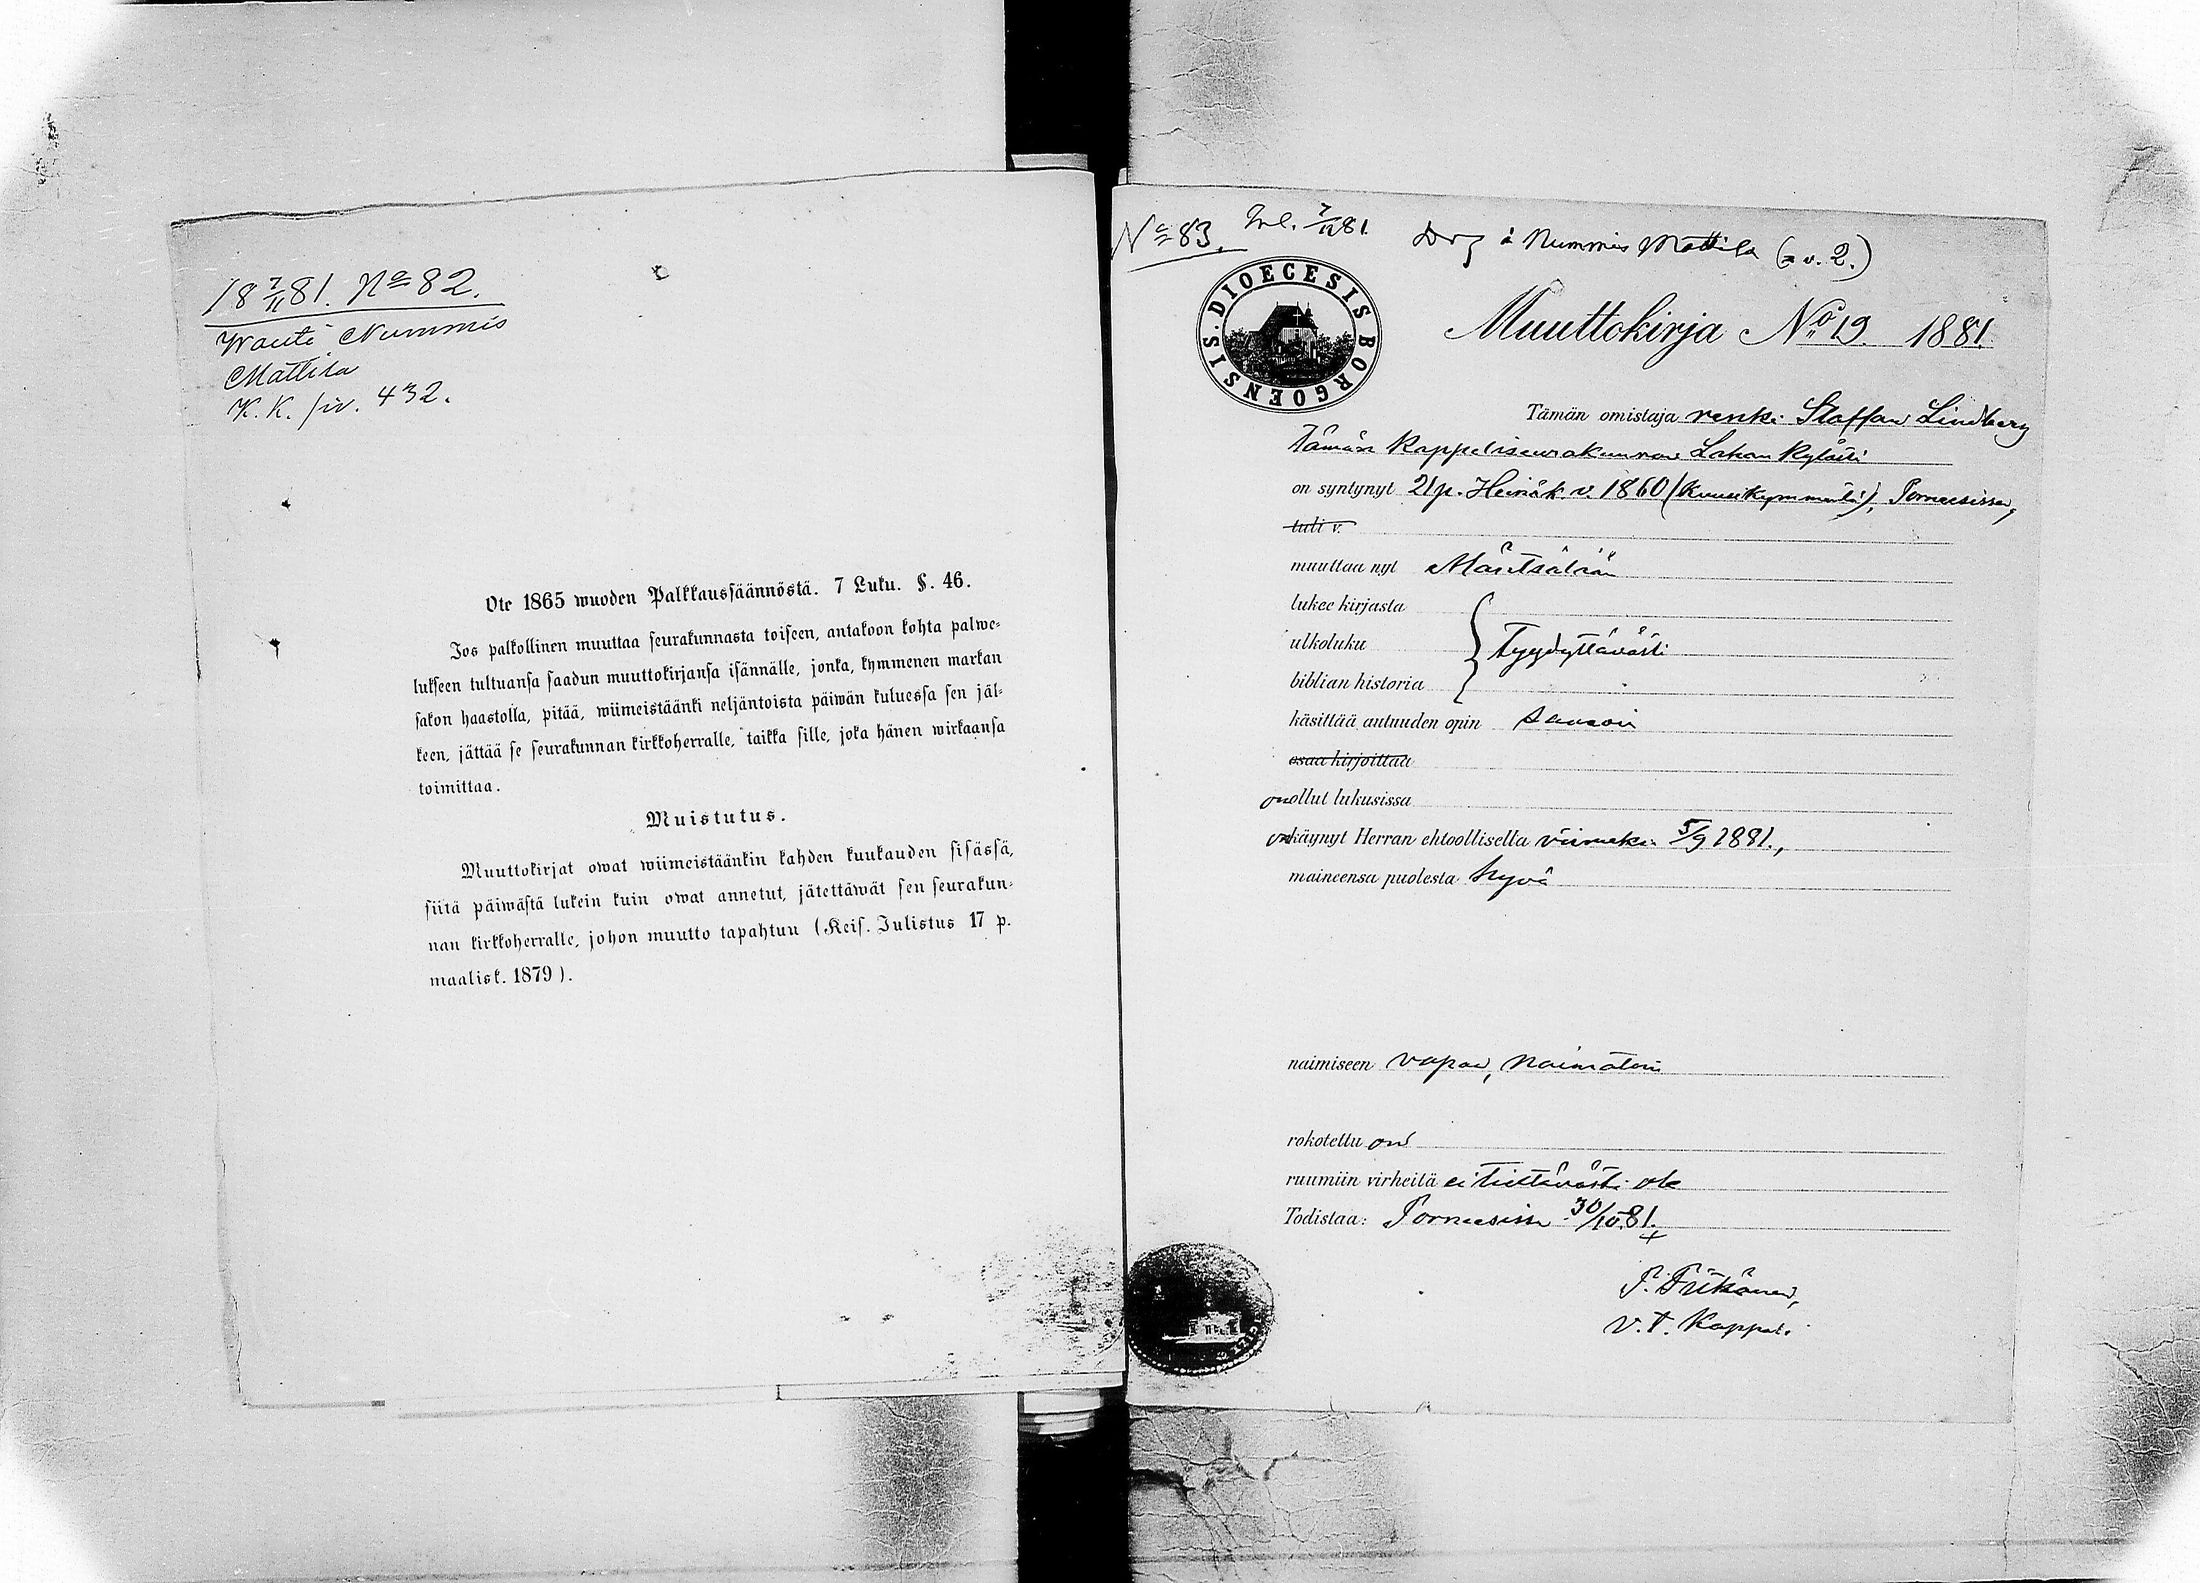 18 7/11 81. No 82.
Wouti Nummis
Mattila
K. K. siv. 432.
Ote 1865 wuoden Palkkaussäännöstä. 7 Luku. §. 46.
Jos palkollinen muuttaa seurakunnasta toiseen, antakoon kohta palwe-
lukseen tultuansa saadun muuttokirjansa isännälle, jonka, kymmenen markan
sakon haastolla, pitää, wiimeistäänki neljäntoista päiwän kuluessa sen jäl-
keen, jättää se seurakunnan kirkkoherralle, taikka sille, joka hänen wirkaansa
toimittaa.
Muistutus.
Muuttokirjat owat wiimeistäänkin kahden kuukauden sisässä,
siitä päiwästä lukein kuin owat annetut, jätettäwät sen seurakun-
nan kirkkoherralle, johon muutto tapahtuu (Keis. Julistus 17 p.
maalisk. 1879).
No 83. Inl. 7/11 81. Drg å Nummis Mattila (= v. 2.)
DIOECESIS BORGOENSIS.
Muuttokirja No 19. 1881.
Tämän omistaja renki Staffan Lindberg
Tämän Kappeliseurakunnan Lahan kylästä
on syntynyt 21 p. Heinäk. v. 1860 (kuusikymmentä), Pornaisissa,
tuli v.
muuttaa nyt Mäntsälään
lukee kirjasta
ulkoluku Tyydyttävästi
biblian historia
käsittää autuuden opin samoin
osaa kirjoittaa
on ollut lukusissa
on käynyt Herran ehtoollisella viimeksi 5/9 1881.,
maineensa puolesta hyvä
naimiseen vapaa, naimatoin
rokotettu on
ruumiin virheitä ei tiettävästi ole
Todistaa: Pornaisissa 30/10 81.
v. t. Kappal.